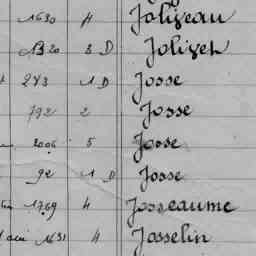 1630 4 Joliveau
1320 3 D Jolivet
243 1 D Josse
792 2 Josse
2006 5 Josse
92 1 D Josse
1769 4 Josseaume
1631 4 Josselin